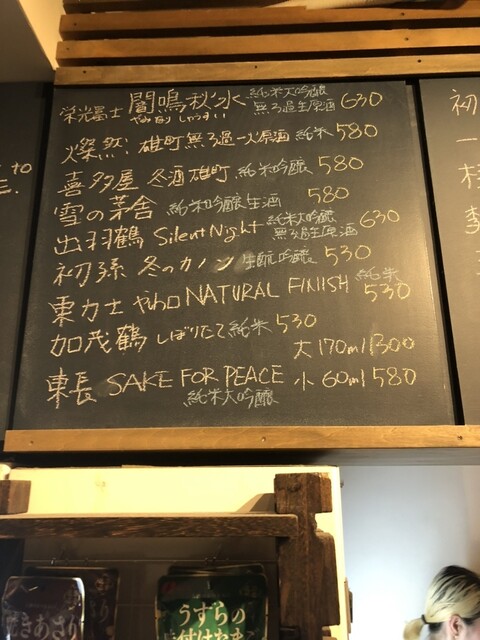 栄光冨士 闇鳴秋水 純米大吟醸 無ろ過生原酒 630
やみなり しゅうすい
燦然! 雄町無ろ過一火原酒 純米 580
喜多屋 冬酒雄町 純米吟醸 580
雪の茅舎 純米吟醸生酒 580
出羽鶴 Silent Night 純米大吟醸 無ろ過生原酒 630
初孫 冬のカノン 生酛吟醸 530
東力士 やや口 NATURAL FINISH 純米 530
加茂鶴 しぼりたて純米 530
大 170ml 1300
東長 SAKE FOR PEACE 小 60ml 580
純米大吟醸
to
初
一
うずらの
味付けたまご
きあさり